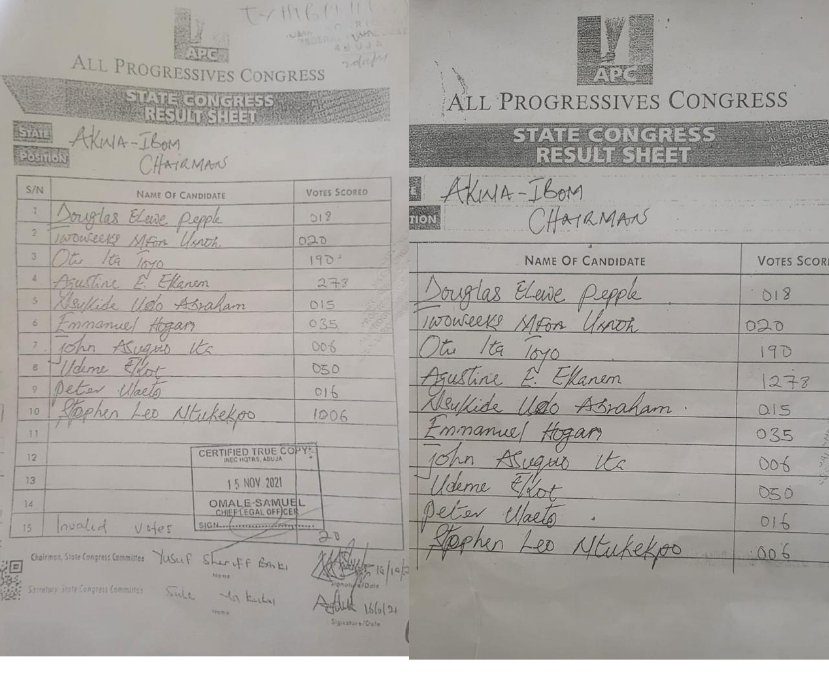 APC
ALL PROGRESSIVES CONGRESS
STATE CONGRESS
RESULT SHEET
STATE AKWA-IBOM
POSITION CHAIRMAN
S/N NAME OF CANDIDATE VOTES SCORED
1 Douglas Elewe Pepple 018
2 Twoweeks Mfon 020
3 Otu Ita Toyo 190
4 Agustine E. Ekanem 273
5 Nsukide Udo Abraham 015
6 Emmanuel Hogan 035
7 John Asuquo Ita 006
8 Udeme Ekot 050
9 Peter Uaeto 016
10 Stephen Leo Ntukekpo 1006
11
12
13
14
15 Invalid Votes 20
CERTIFIED TRUE COPY
INEC HQTRS, ABUJA
15 NOV 2021
OMALE SAMUEL
CHIEF LEGAL OFFICER
SIGN
Chairman, State Congress Committee Yusuf Sheriff Banki
Name Signature/Date
Secretary, State Congress Committee Sule
Name Signature/Date
APC
ALL PROGRESSIVES CONGRESS
STATE CONGRESS
RESULT SHEET
AKWA-IBOM
TION CHAIRMAN
NAME OF CANDIDATE VOTES SCOR
Douglas Elewe Pepple 018
Twoweeks Mfon 020
Otu Ita Toyo 190
Agustine E. Ekanem 1273
Nsukide Udo Abraham 015
Emmanuel Hogan 035
John Asuquo Ita 006
Udeme Ekot 050
Peter Uaeto 016
Stephen Leo Ntukekpo 006